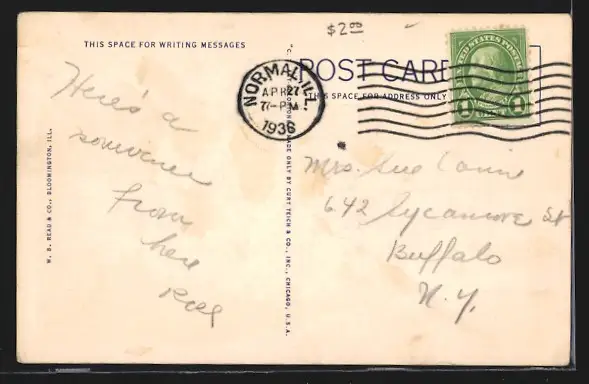 $2.00
THIS SPACE FOR WRITING MESSAGES
POST CARD
THIS SPACE FOR ADDRESS ONLY
NORMAL, ILL.
APR 27
7-PM
1936
UNITED STATES POSTAGE
1
1
Here's a
souvenir
from
here
W. B. READ & CO., BLOOMINGTON, ILL.
MADE ONLY BY CURT TEICH & CO., INC., CHICAGO, U.S.A.
Mrs. Sue
642 Sycamore St
Buffalo
N.Y.